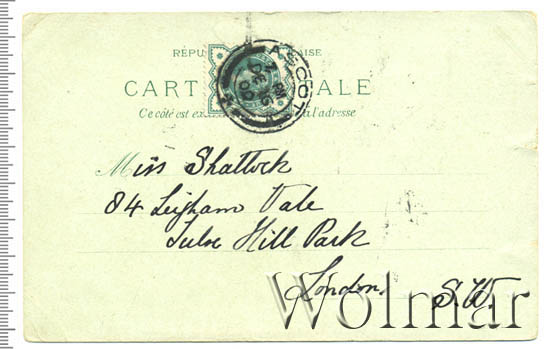 RÉPU AISE
CART ALE
Ce côté est ex à l'adresse
ASCOT
Miss Shattock
84 Leigham Vale
Tulse Hill Park
London.
S.W.
Wolmar